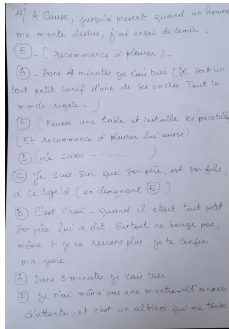 A cause, jusqu'à present quand un homme
me monte dessus, j'ai envie de
E - ( recommence à pleurer ) -
A - Dans 4 minutes je vais tuer ( Il sort un
tout petit canif d'une de ses poches. Tout le
monde rigole - )
E ( Pousse une table et
( Et recommence à pleurer lui aussi )
D ( Le Saxo
C Je suis sûr que son père, est
à ce type là ( en désignant E ) -
B C'est vrai - quand il était tout petit
son père lui a dit Surtout ne bouge pas,
même si je ne reviens plus je te confie
ma gare
A Dans 3 minutes je vais tuer
E Je n'ai même pas une
d'attente, et c'est un albinos qui me tombe